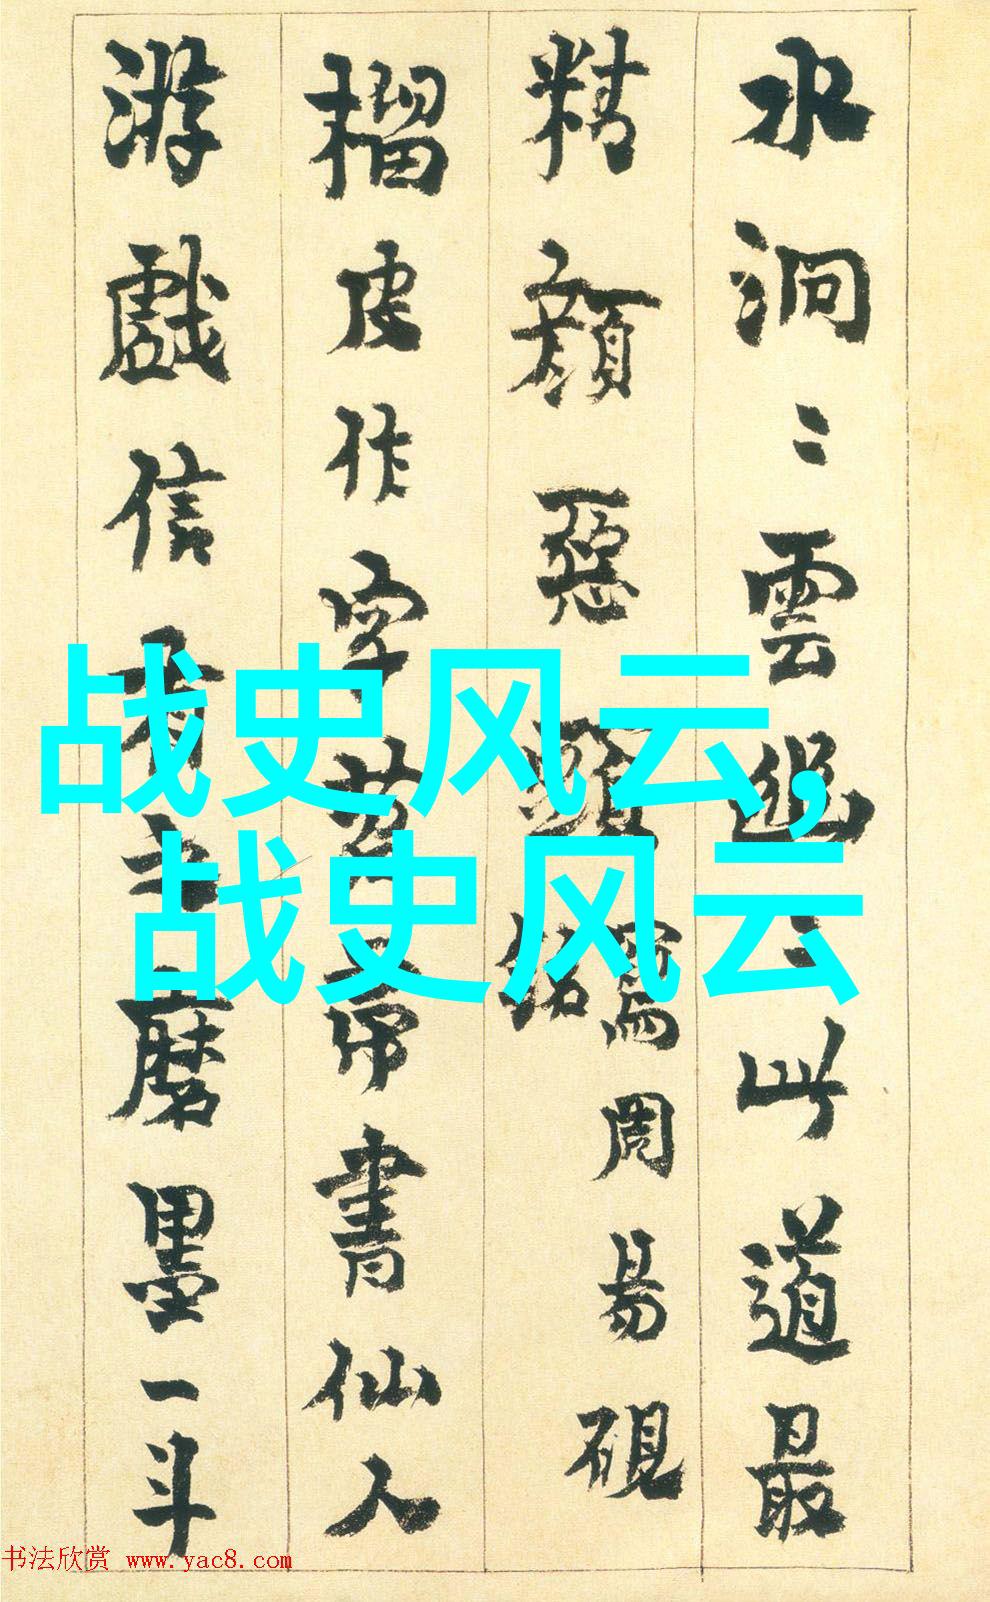 水洞〻雲〻此道最
精顏惡寫周易硯銘
榴皮作字帝書仙人
游戲信有之磨墨一斗
战史风云,
战史风云
书法欣赏 www.yac8.com